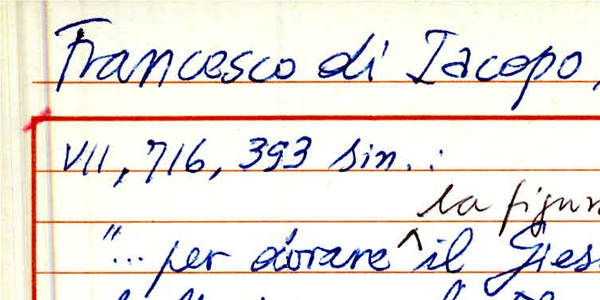 Francesco di Iacopo,
VII, 716, 393 sin. :
la figur
"... per dorare ^ il Gies